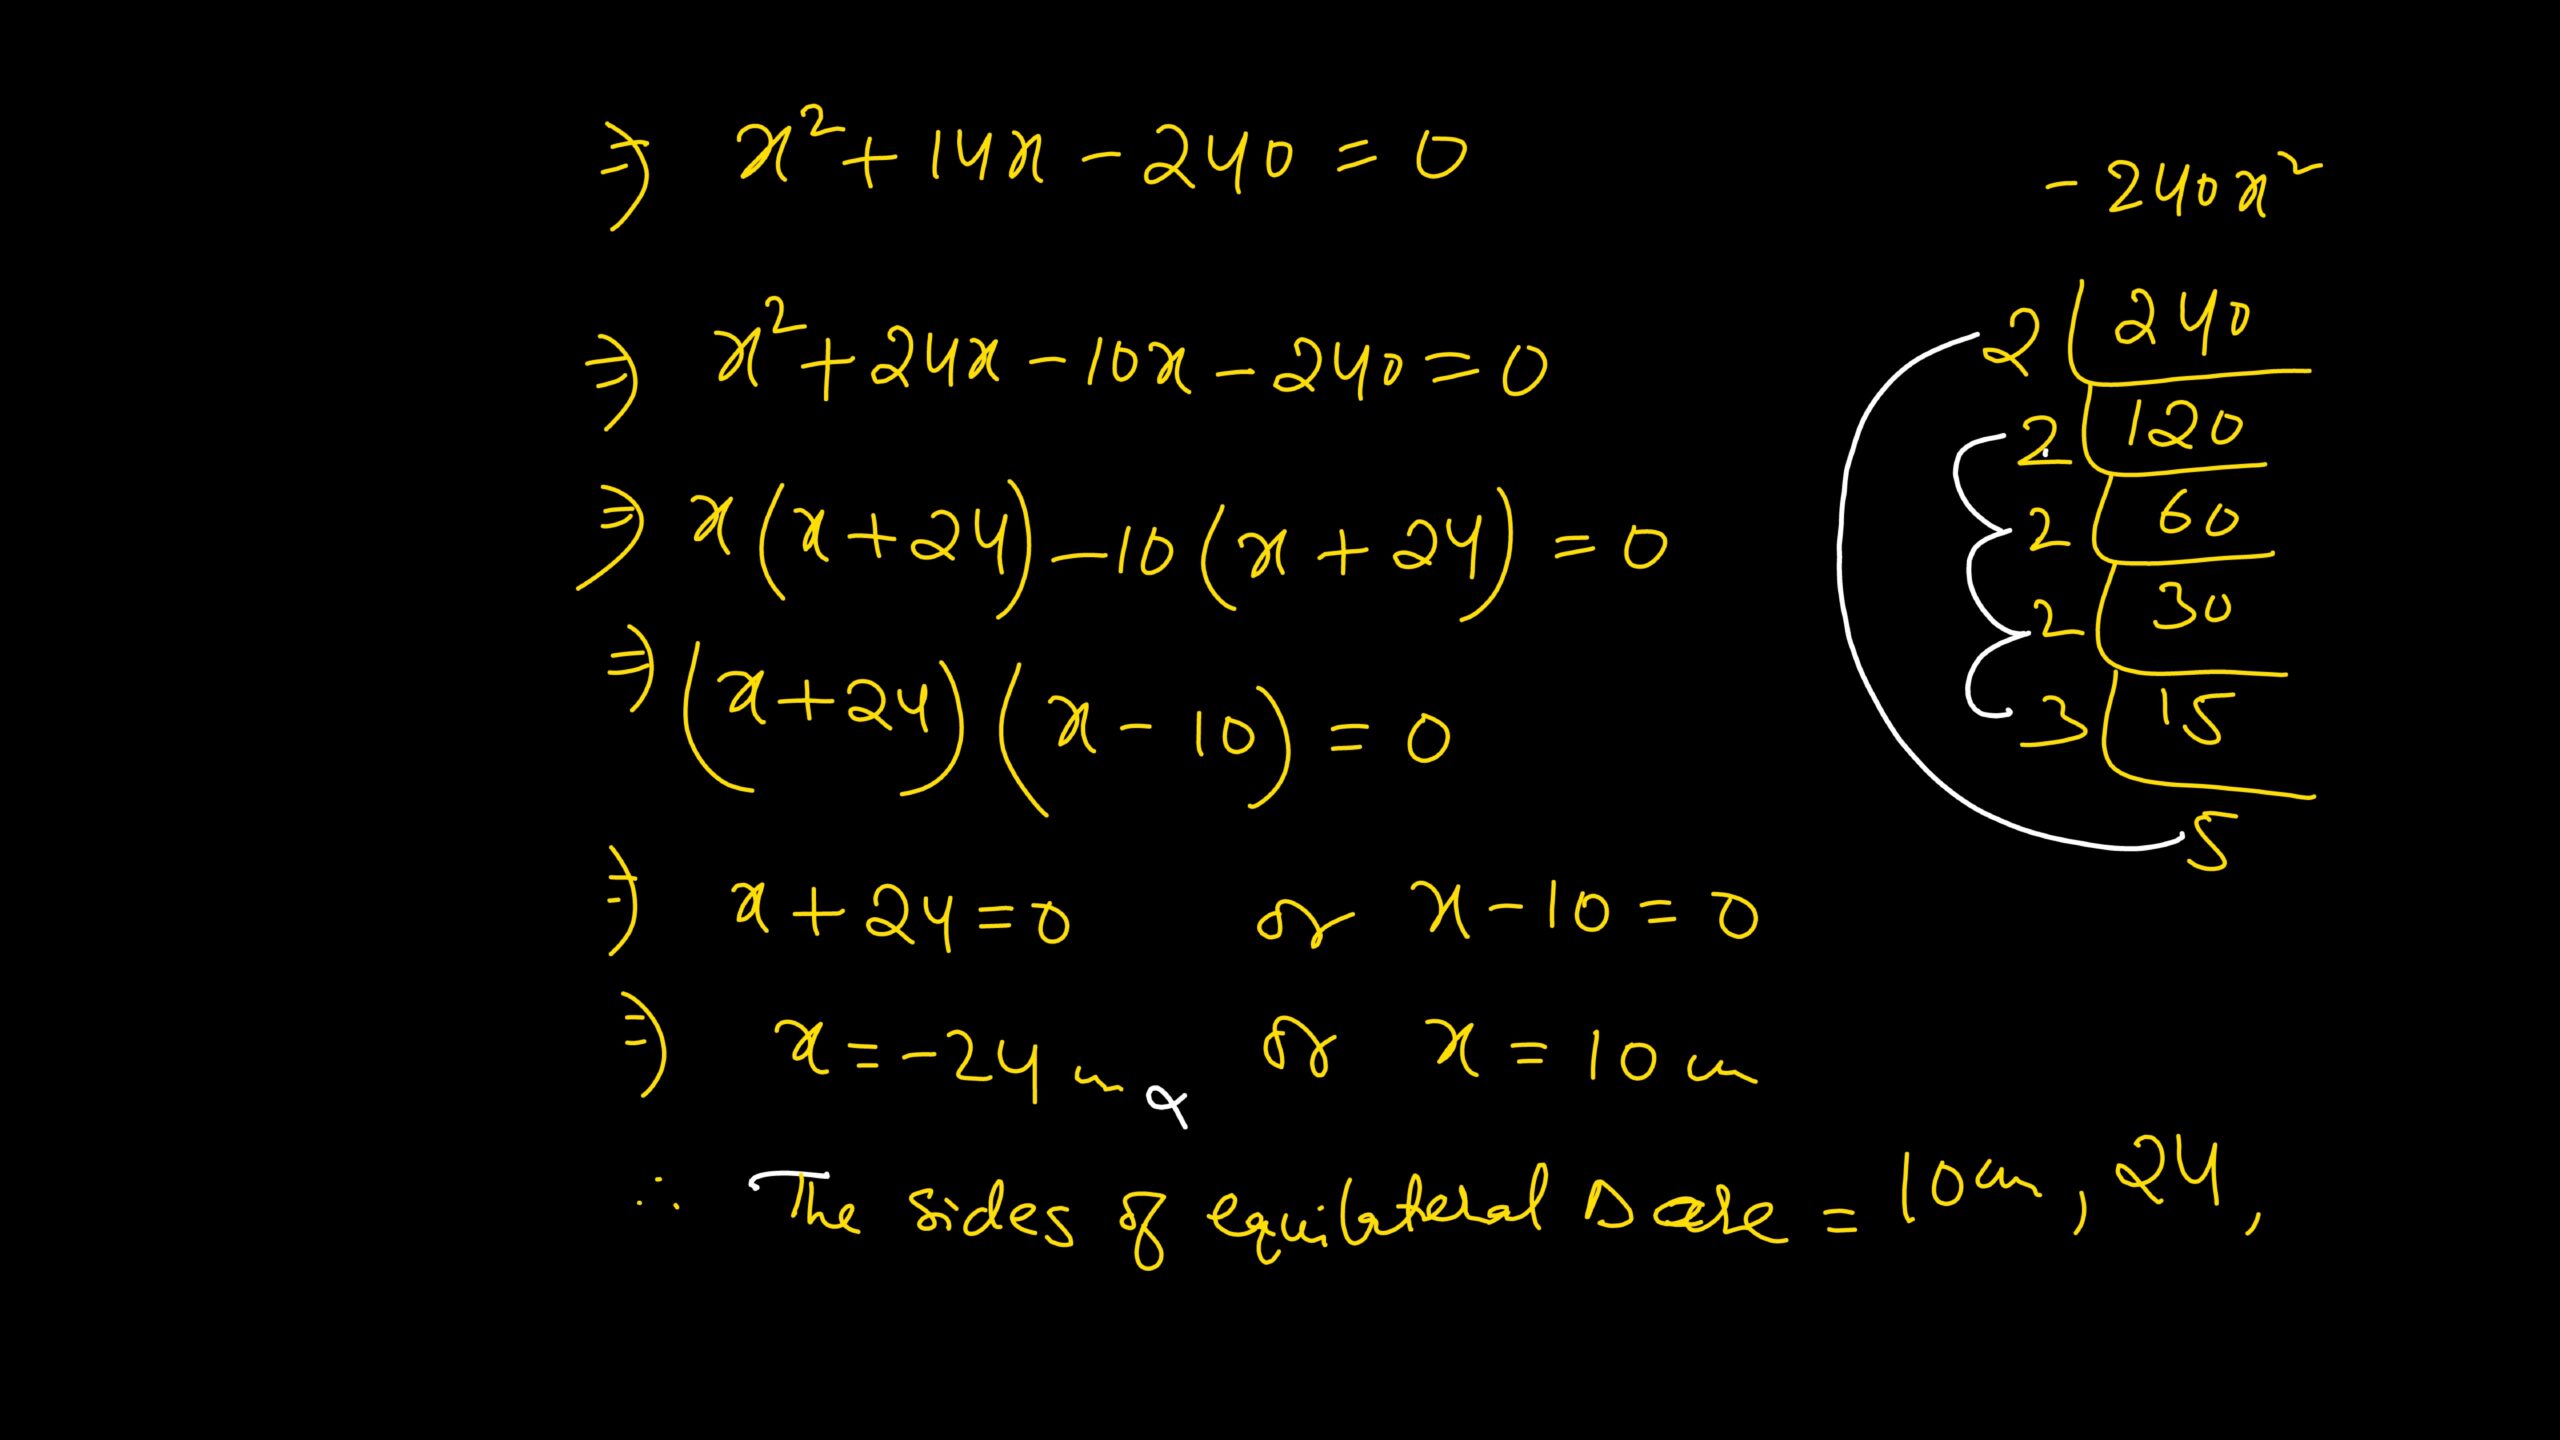 ⇒ x² + 14x - 240 = 0
⇒ x² + 24x - 10x - 240 = 0
⇒ x(x + 24) - 10(x + 24) = 0
⇒ (x + 24)(x - 10) = 0
⇒ x + 24 = 0 or x - 10 = 0
⇒ x = -24 cm or x = 10 cm
∴ The sides of equilateral Δ are = 10 cm, 24,
- 240x²
2 | 240
2 | 120
2 | 60
2 | 30
3 | 15
5